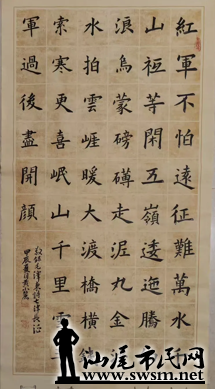 紅軍不怕遠征難萬水
山衹等閑五嶺逶迤騰
浪烏蒙磅礴走泥丸金
水拍雲崖暖大渡橋橫
索寒更喜岷山千里雪
軍過後盡開顔
敬錄毛澤東詩七律長征
汕尾市民网
www.swsm.net